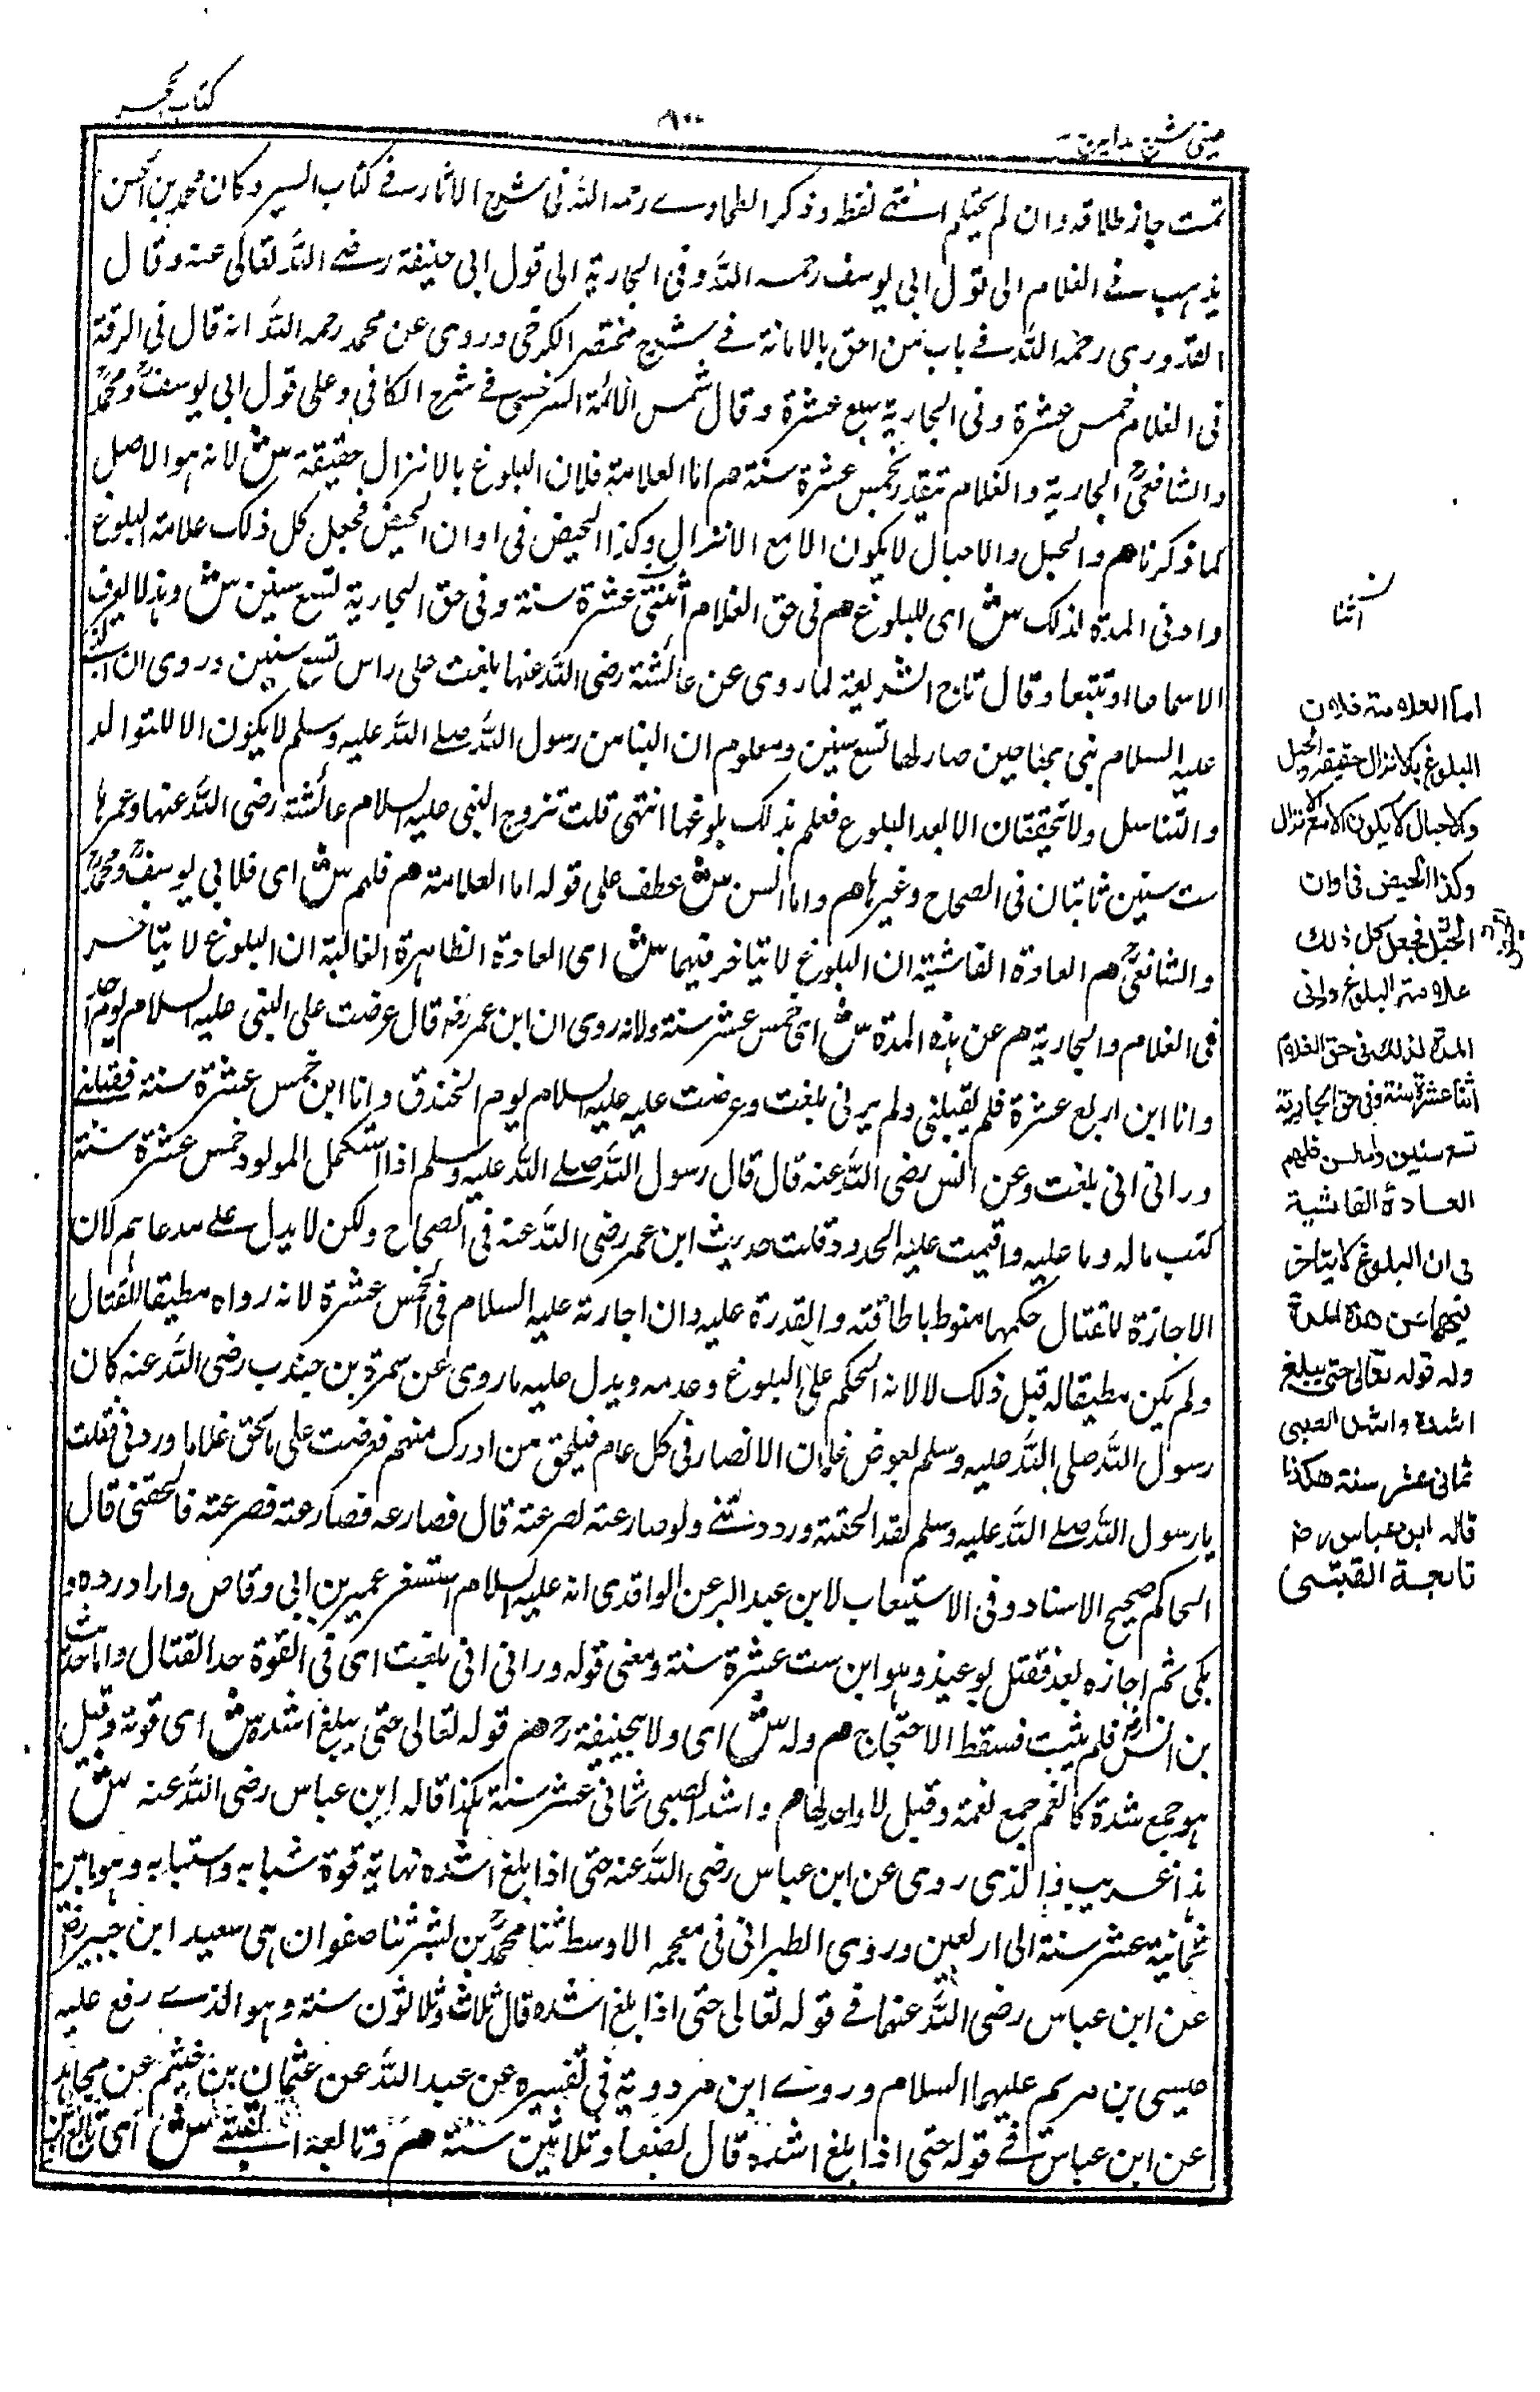 عینی شرح هدایه
٩٠٠
کتاب الحجر
تمت جاز طلاقه وان لم یحتلم انتهی لفظه وذکر الطحاوی رحمه الله فی شرح الاثار فی کتاب السیر وکان محمد بن الحسن
یذهب فی الغلام الی قول ابی یوسف رحمه الله وفی الجاریة الی قول ابی حنیفة رضی الله تعالی عنه وقال
القدوری رحمه الله فی باب من احق بالامانة فی شرح مختصر الکرخی وروی عن محمد رحمه الله انه قال فی الرقة
فی الغلام خمس عشرة وفی الجاریة سبع عشرة وقال شمس الائمة السرخسی فی شرح الکافی وعلی قول ابی یوسف ومحمد
والشافعی الجاریة والغلام یتقدر بخمس عشرة سنة هم اما العلامة فلان البلوغ بالانزال حقیقة ش لانه هو الاصل
کما ذکرنا هم والحبل والاحبال لا یکون الا مع الانزال وکذا الحیض فی اوان الحیض فجعل کل ذلک علامة البلوغ
وادنی المدة لذلک ش ای للبلوغ هم فی حق الغلام اثنتی عشرة سنة وفی حق الجاریة تسع سنین ش وهذا لا یعرف
الا سماعا او تتبعا وقال تاج الشریعة لما روی عن عائشة رضی الله عنها بلغت علی راس تسع سنین وروی ان النبی
علیه السلام بنی بها حین صار لها تسع سنین ومعلوم ان البنا من رسول الله صلی الله علیه وسلم لا یکون الا للتوالد
والتناسل ولا یتحققان الا بعد البلوغ فعلم بذلک بلوغها انتهی قلت تزوج النبی علیه السلام عائشة رضی الله عنها وعمرها
ست سنین ثابتان فی الصحاح وغیرها هم واما السن ش عطف علی قوله اما العلامة هم فلهم ش ای فلابی یوسف ومحمد
والشافعی هم العادة الفاشیة ان البلوغ لا یتاخر فیهما ش ای العادة الظاهرة الغالبة ان البلوغ لا یتاخر
فی الغلام والجاریة هم عن هذه المدة ش ای خمس عشر سنة ولانه روی ان ابن عمر رضه قال عرضت علی النبی علیه السلام یوم احد
وانا ابن اربع عشرة فلم یقبلنی ولم یرنی بلغت وعرضت علیه علیه السلام یوم الخندق وانا ابن خمس عشرة سنة فقبلنی
ورانی انی بلغت وعن انس رضی الله عنه قال قال رسول الله صلی الله علیه وسلم اذا استکمل المولود خمس عشرة سنة
کتب ماله وما علیه واقیمت علیه الحدود قلت حدیث ابن عمر رضی الله عنه فی الصحاح ولکن لا یدل علی مدعاهم لان
الاجازة للقتال حکمها منوط باطاقته والقدرة علیه وان اجازته علیه السلام فی الخمس عشرة لانه رواه مطیقا للقتال
ولم یکن مطیقا له قبل ذلک لا لانه الحکم علی البلوغ وعدمه ویدل علیه ما روی عن سمرة بن جندب رضی الله عنه کان
رسول الله صلی الله علیه وسلم یعرض غلمان الانصار فی کل عام فیلحق من ادرک منهم فعرضت علی ما لحق غلاما وردنی فقلت
یا رسول الله صلی الله علیه وسلم لقد الحقته ورددتنی ولو صارعته لصرعته قال فصارعه فصارعته فصرعته فالحقنی قال
الحاکم صحیح الاسناد وفی الاستیعاب لابن عبد البر عن الواقدی انه علیه السلام استصغر عمیر بن ابی وقاص واراد رده و
بکی ثم اجازه بعد فقتل یومئذ وهو ابن ست عشرة سنة ومعنی قوله ورانی انی بلغت ای فی القوة حد القتال واما حدیث
بن انس فلم یثبت فسقط الاحتجاج هم وله ش ای ولابی حنیفة رح هم قوله تعالی حتی یبلغ اشده ش ای قوته وقیل
هو جمع شدة کالنعم جمع نعمة وقیل لا واحد لها هم واشد الصبی ثمانی عشر سنة هکذا قاله ابن عباس رضی الله عنه ش
هذا غریب والذی روی عن ابن عباس رضی الله عنه حتی اذا بلغ اشده نهایة قوة شبابه واستبابه وهو ما بین
ثمانیة عشر سنة الی اربعین وروی الطبرانی فی معجمه الاوسط ثنا محمد بن بشر ثنا صفوان هی سعید ابن جبیر رض
عن ابن عباس رضی الله عنهما فی قوله تعالی حتی اذا بلغ اشده قال ثلاث وثلاثون سنة وهو الذی رفع علیه
عیسی بن مریم علیهما السلام وروی ابن مردویة فی تفسیره عن عبد الله عن عثمان بن خیثم عن مجاهد
عن ابن عباس فی قوله حتی اذا بلغ اشده قال بضعا وثلاثین سنة هم وتابعه القتبی ش ای تابع ابن
اثنا
اما العلامة فلان
البلوغ بالانزال حقیقة والحبل
والاحبال لا یکون الا مع الانزال
وکذا الحیض فی اوان
الحبل فجعل کل ذلک
علامة البلوغ وادنی
المدة لذلک فی حق الغلام
اثنا عشرة سنة وفی حق الجاریة
تسع سنین واما السن فلهم
العادة الفاشیة
فی ان البلوغ لا یتاخر
فیهما عن هذه المدة
وله قوله تعالی حتی یبلغ
اشده واشد الصبی
ثمانی عشر سنة هکذا
قاله ابن عباس رض
تابعه القتبی